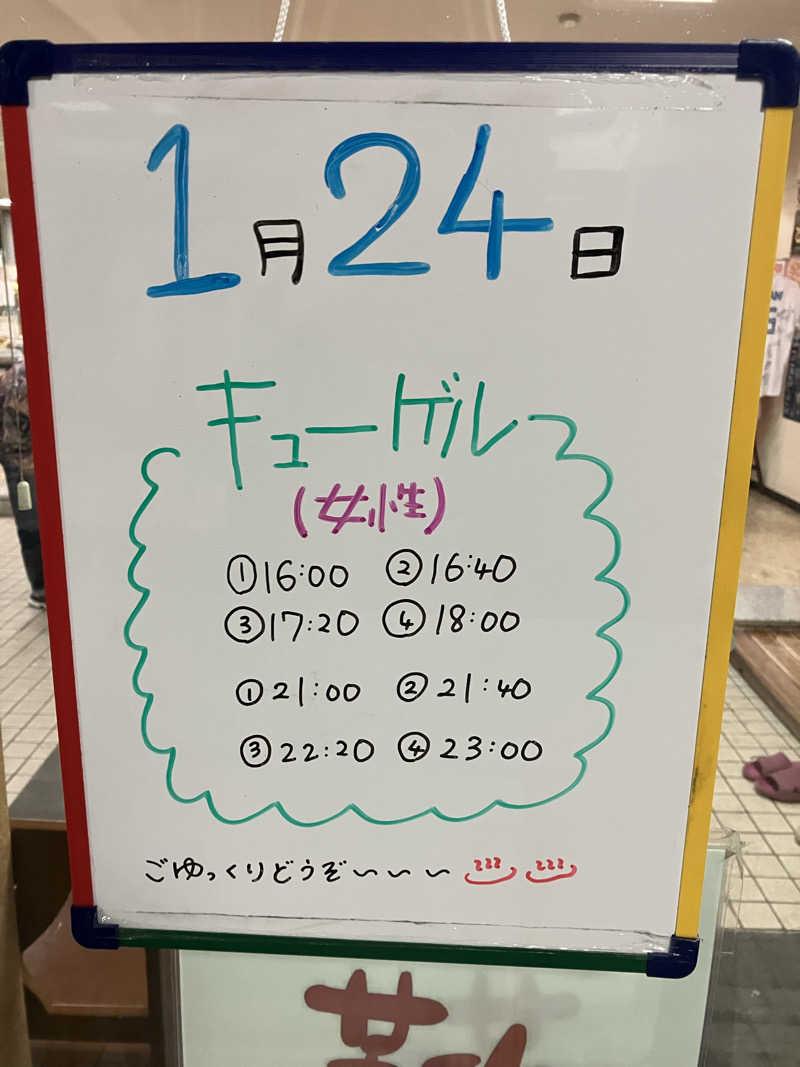 1月24日
キューゲル
(女性)
①16:00 ②16:40
③17:20 ④18:00
①21:00 ②21:40
③22:20 ④23:00
ごゆっくりどうぞ〜〜〜